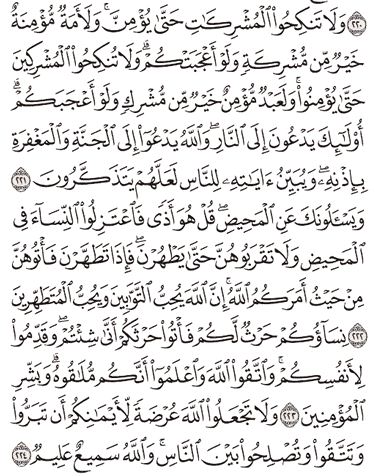 ٢٢٠ وَلَا تَنكِحُوا۟ ٱلْمُشْرِكَـٰتِ حَتَّىٰ يُؤْمِنَّ ۚ وَلَأَمَةٌ مُّؤْمِنَةٌ
خَيْرٌ مِّن مُّشْرِكَةٍ وَلَوْ أَعْجَبَتْكُمْ ۗ وَلَا تُنكِحُوا۟ ٱلْمُشْرِكِينَ
حَتَّىٰ يُؤْمِنُوا۟ ۚ وَلَعَبْدٌ مُّؤْمِنٌ خَيْرٌ مِّن مُّشْرِكٍ وَلَوْ أَعْجَبَكُمْ ۗ
أُو۟لَـٰٓئِكَ يَدْعُونَ إِلَى ٱلنَّارِ ۖ وَٱللَّهُ يَدْعُوٓا۟ إِلَى ٱلْجَنَّةِ وَٱلْمَغْفِرَةِ
بِإِذْنِهِۦ ۖ وَيُبَيِّنُ ءَايَـٰتِهِۦ لِلنَّاسِ لَعَلَّهُمْ يَتَذَكَّرُونَ ٢٢١
وَيَسْـَٔلُونَكَ عَنِ ٱلْمَحِيضِ ۖ قُلْ هُوَ أَذًى فَٱعْتَزِلُوا۟ ٱلنِّسَآءَ فِى
ٱلْمَحِيضِ ۖ وَلَا تَقْرَبُوهُنَّ حَتَّىٰ يَطْهُرْنَ ۖ فَإِذَا تَطَهَّرْنَ فَأْتُوهُنَّ
مِنْ حَيْثُ أَمَرَكُمُ ٱللَّهُ ۚ إِنَّ ٱللَّهَ يُحِبُّ ٱلتَّوَّٰبِينَ وَيُحِبُّ ٱلْمُتَطَهِّرِينَ
٢٢٢ نِسَآؤُكُمْ حَرْثٌ لَّكُمْ فَأْتُوا۟ حَرْثَكُمْ أَنَّىٰ شِئْتُمْ ۖ وَقَدِّمُوا۟
لِأَنفُسِكُمْ ۚ وَٱتَّقُوا۟ ٱللَّهَ وَٱعْلَمُوٓا۟ أَنَّكُم مُّلَـٰقُوهُ ۗ وَبَشِّرِ
ٱلْمُؤْمِنِينَ ٢٢٣ وَلَا تَجْعَلُوا۟ ٱللَّهَ عُرْضَةً لِّأَيْمَـٰنِكُمْ أَن تَبَرُّوا۟
وَتَتَّقُوا۟ وَتُصْلِحُوا۟ بَيْنَ ٱلنَّاسِ ۗ وَٱللَّهُ سَمِيعٌ عَلِيمٌ ٢٢٤